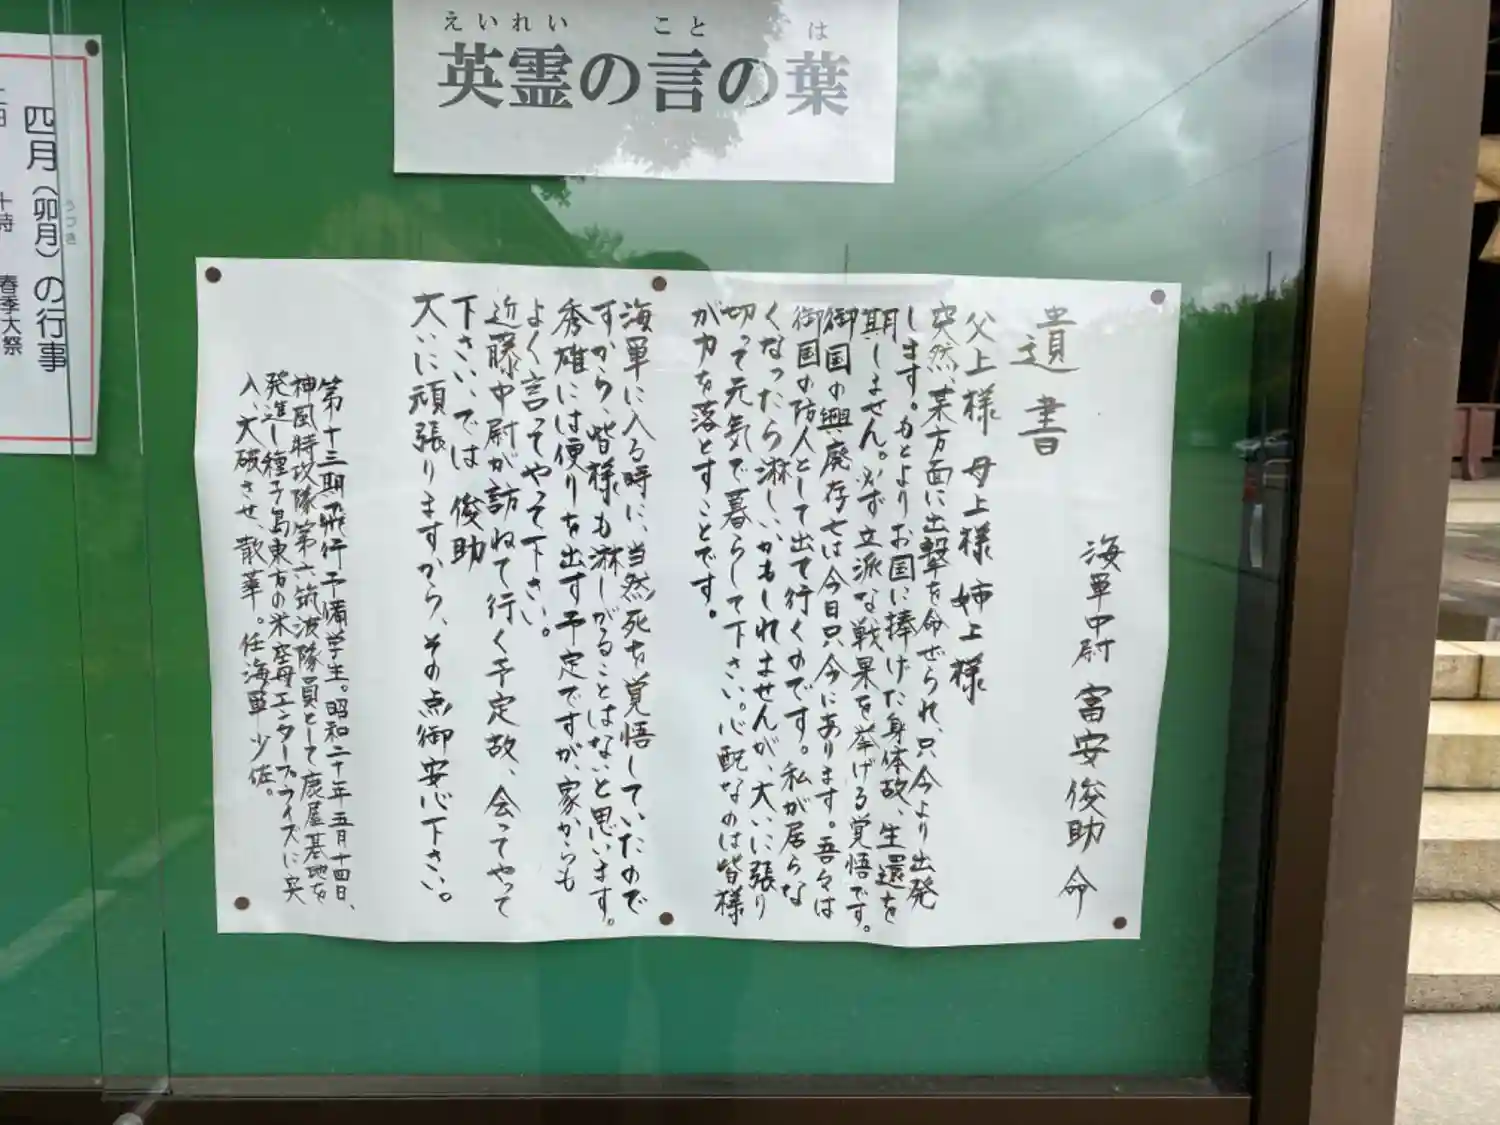 えいれい　こと　は
英霊の言の葉
遺書
海軍中尉 富安俊助 命
父上様 母上様 姉上様
突然、某方面に出撃を命ぜられ、只今より出発
します。もとよりお国に捧げた身体故、生還を
期しません。必ず立派な戦果を挙げる覚悟です。
御国の興廃存亡は今日只今にあります。吾々は
御国の防人として出て行くのです。私が居らな
くなったら淋しいかもしれませんが、大いに張り
切って元気で暮らして下さい。心配なのは皆様
が力を落とすことです。
海軍に入る時に、当然死を覚悟していたので
すから、皆様も淋しがることはないと思います。
秀雄には便りを出す予定ですが、家からも
よく言ってやって下さい。
近藤中尉が訪ねて行く予定故、会ってやって
下さい、では 俊助
大いに頑張りますから、その点御安心下さい。
第十三期飛行予備学生。昭和二十年五月十四日、
神風特攻隊第六筑波隊員として鹿屋基地を
発進し種子島東方の米空母エンタープライズに突
入、大破させ、散華。任海軍少佐。
四月（卯月）の行事
うづき
十時 春季大祭